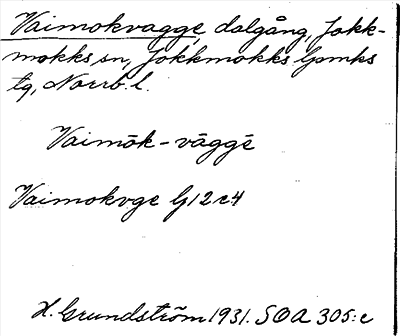 Vaimokvagge, dalgång, Jokk-
mokks sn, Jokkmokks lpmks
tg, Norrb. l.
Vaimōk - vāggē
Vaimokvge G12c4
H. Grundström 1931. SOA 305:c